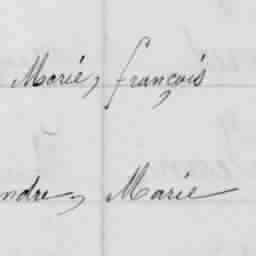 Marie, françois
ndre, Marie